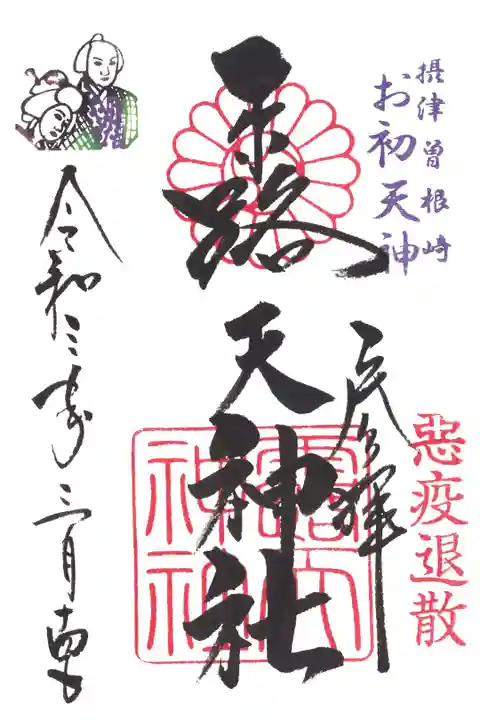 摂津曽根崎
お初天神
悪疫退散
露天神社
露天
神社
令和二年三月